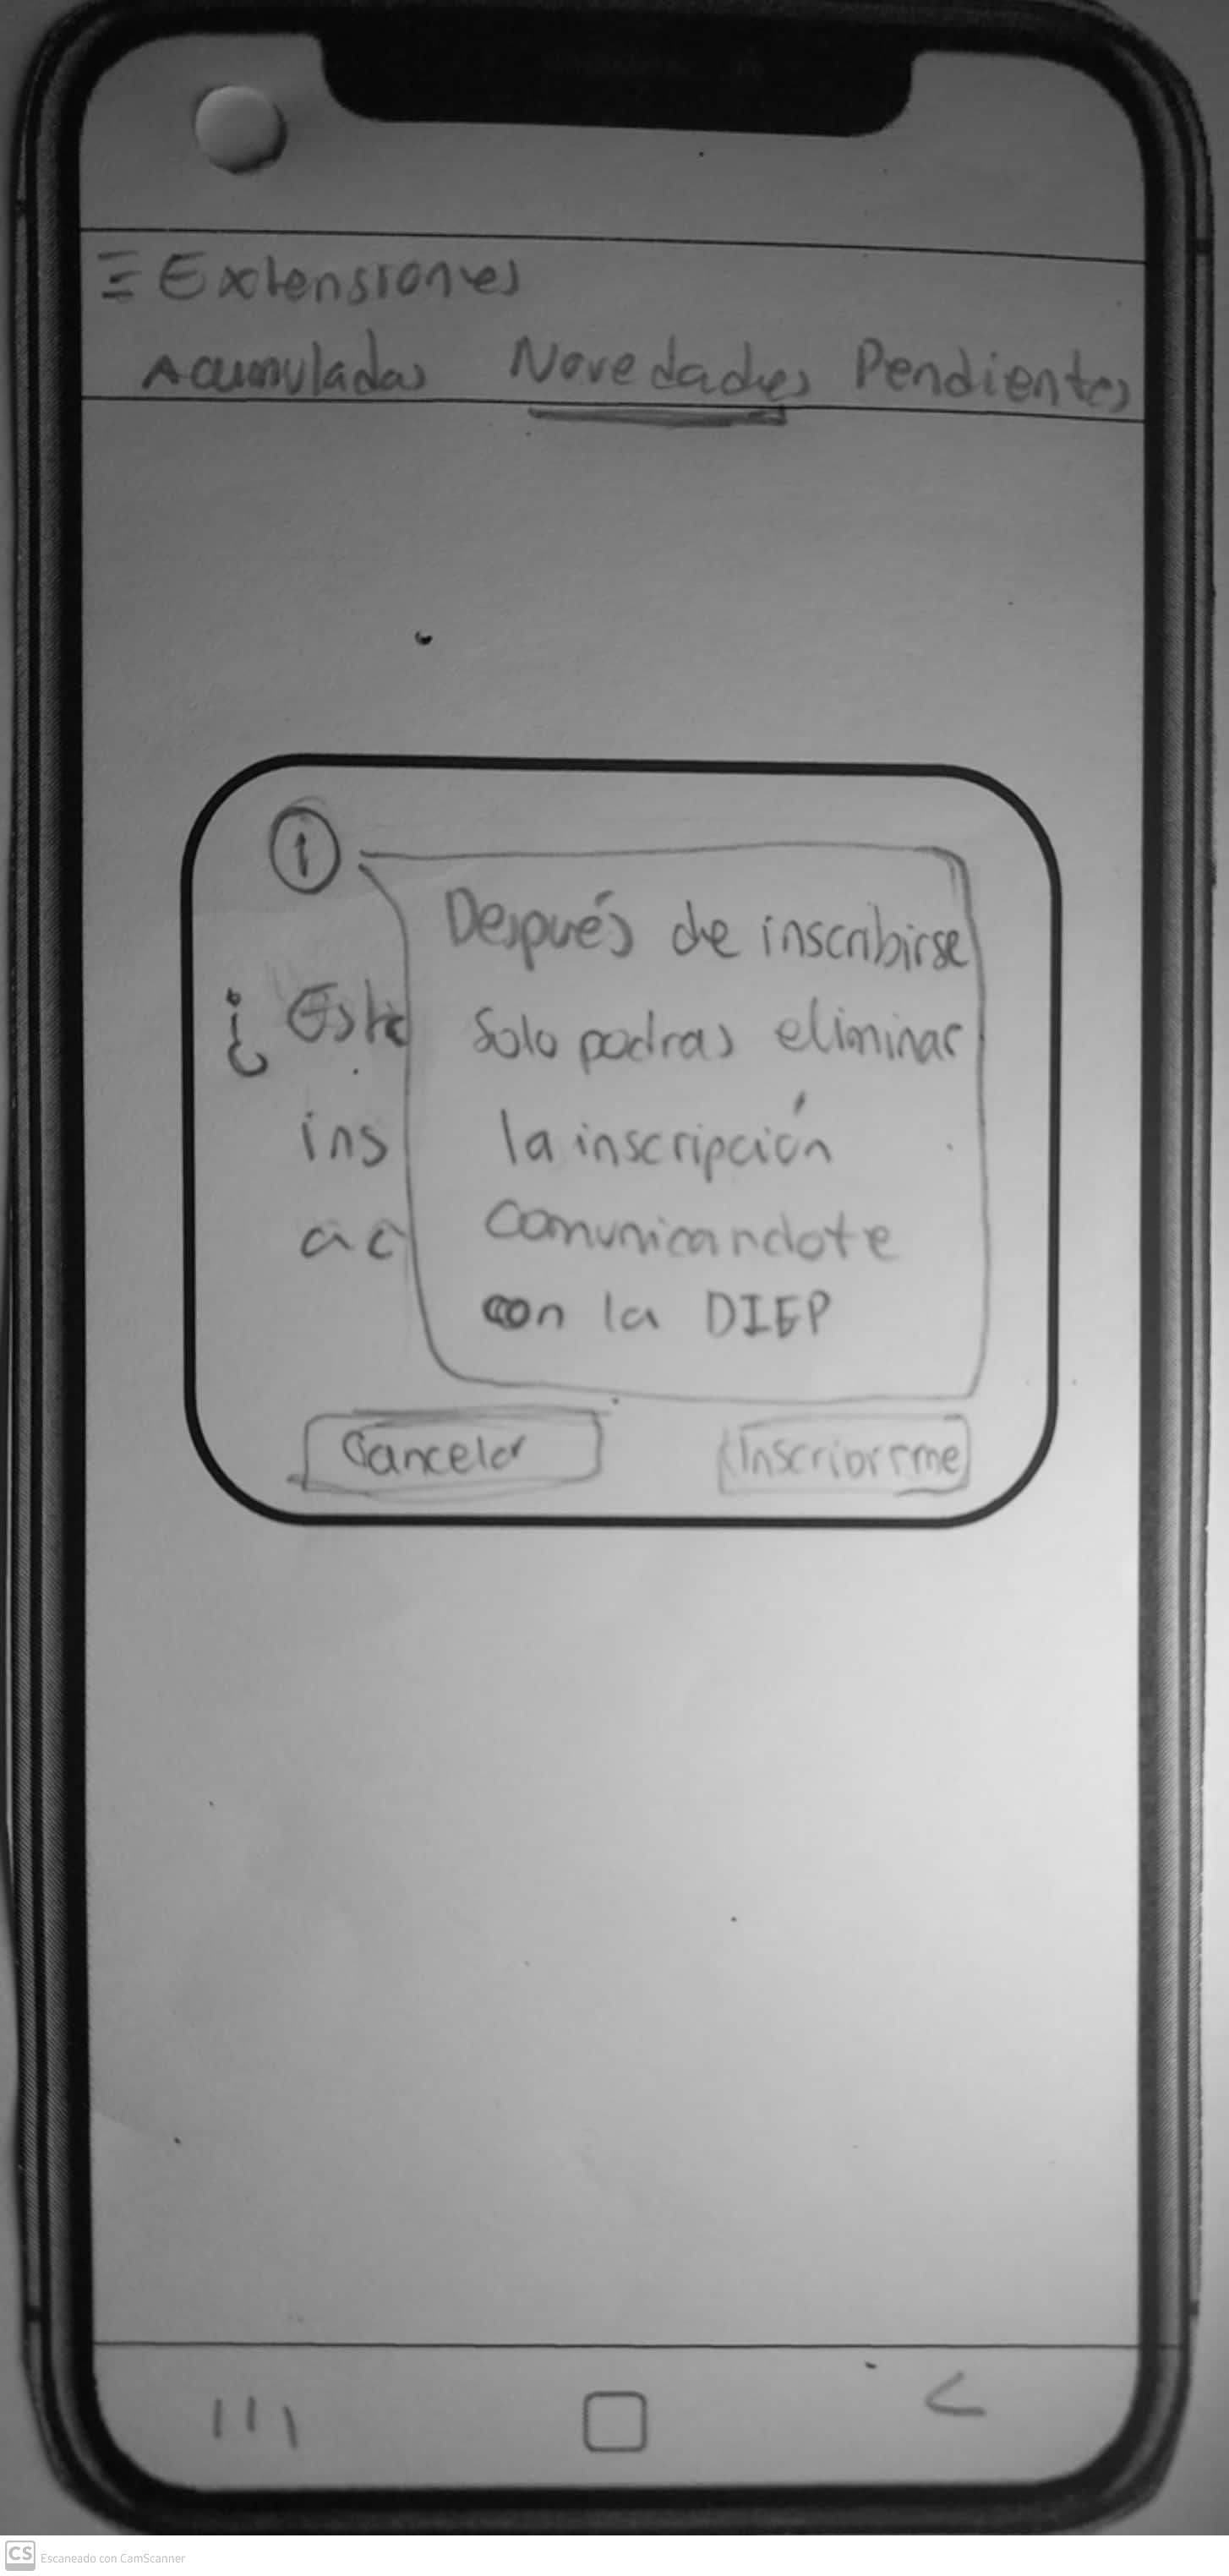 Extensiones
Acumuladas Novedades Pendientes
Después de inscribirse
Solo podras eliminar
la inscripción
comunicandote
con la DIEP
¿ Está
ins
ac
Cancelar Inscribirme
CS Escaneado con CamScanner